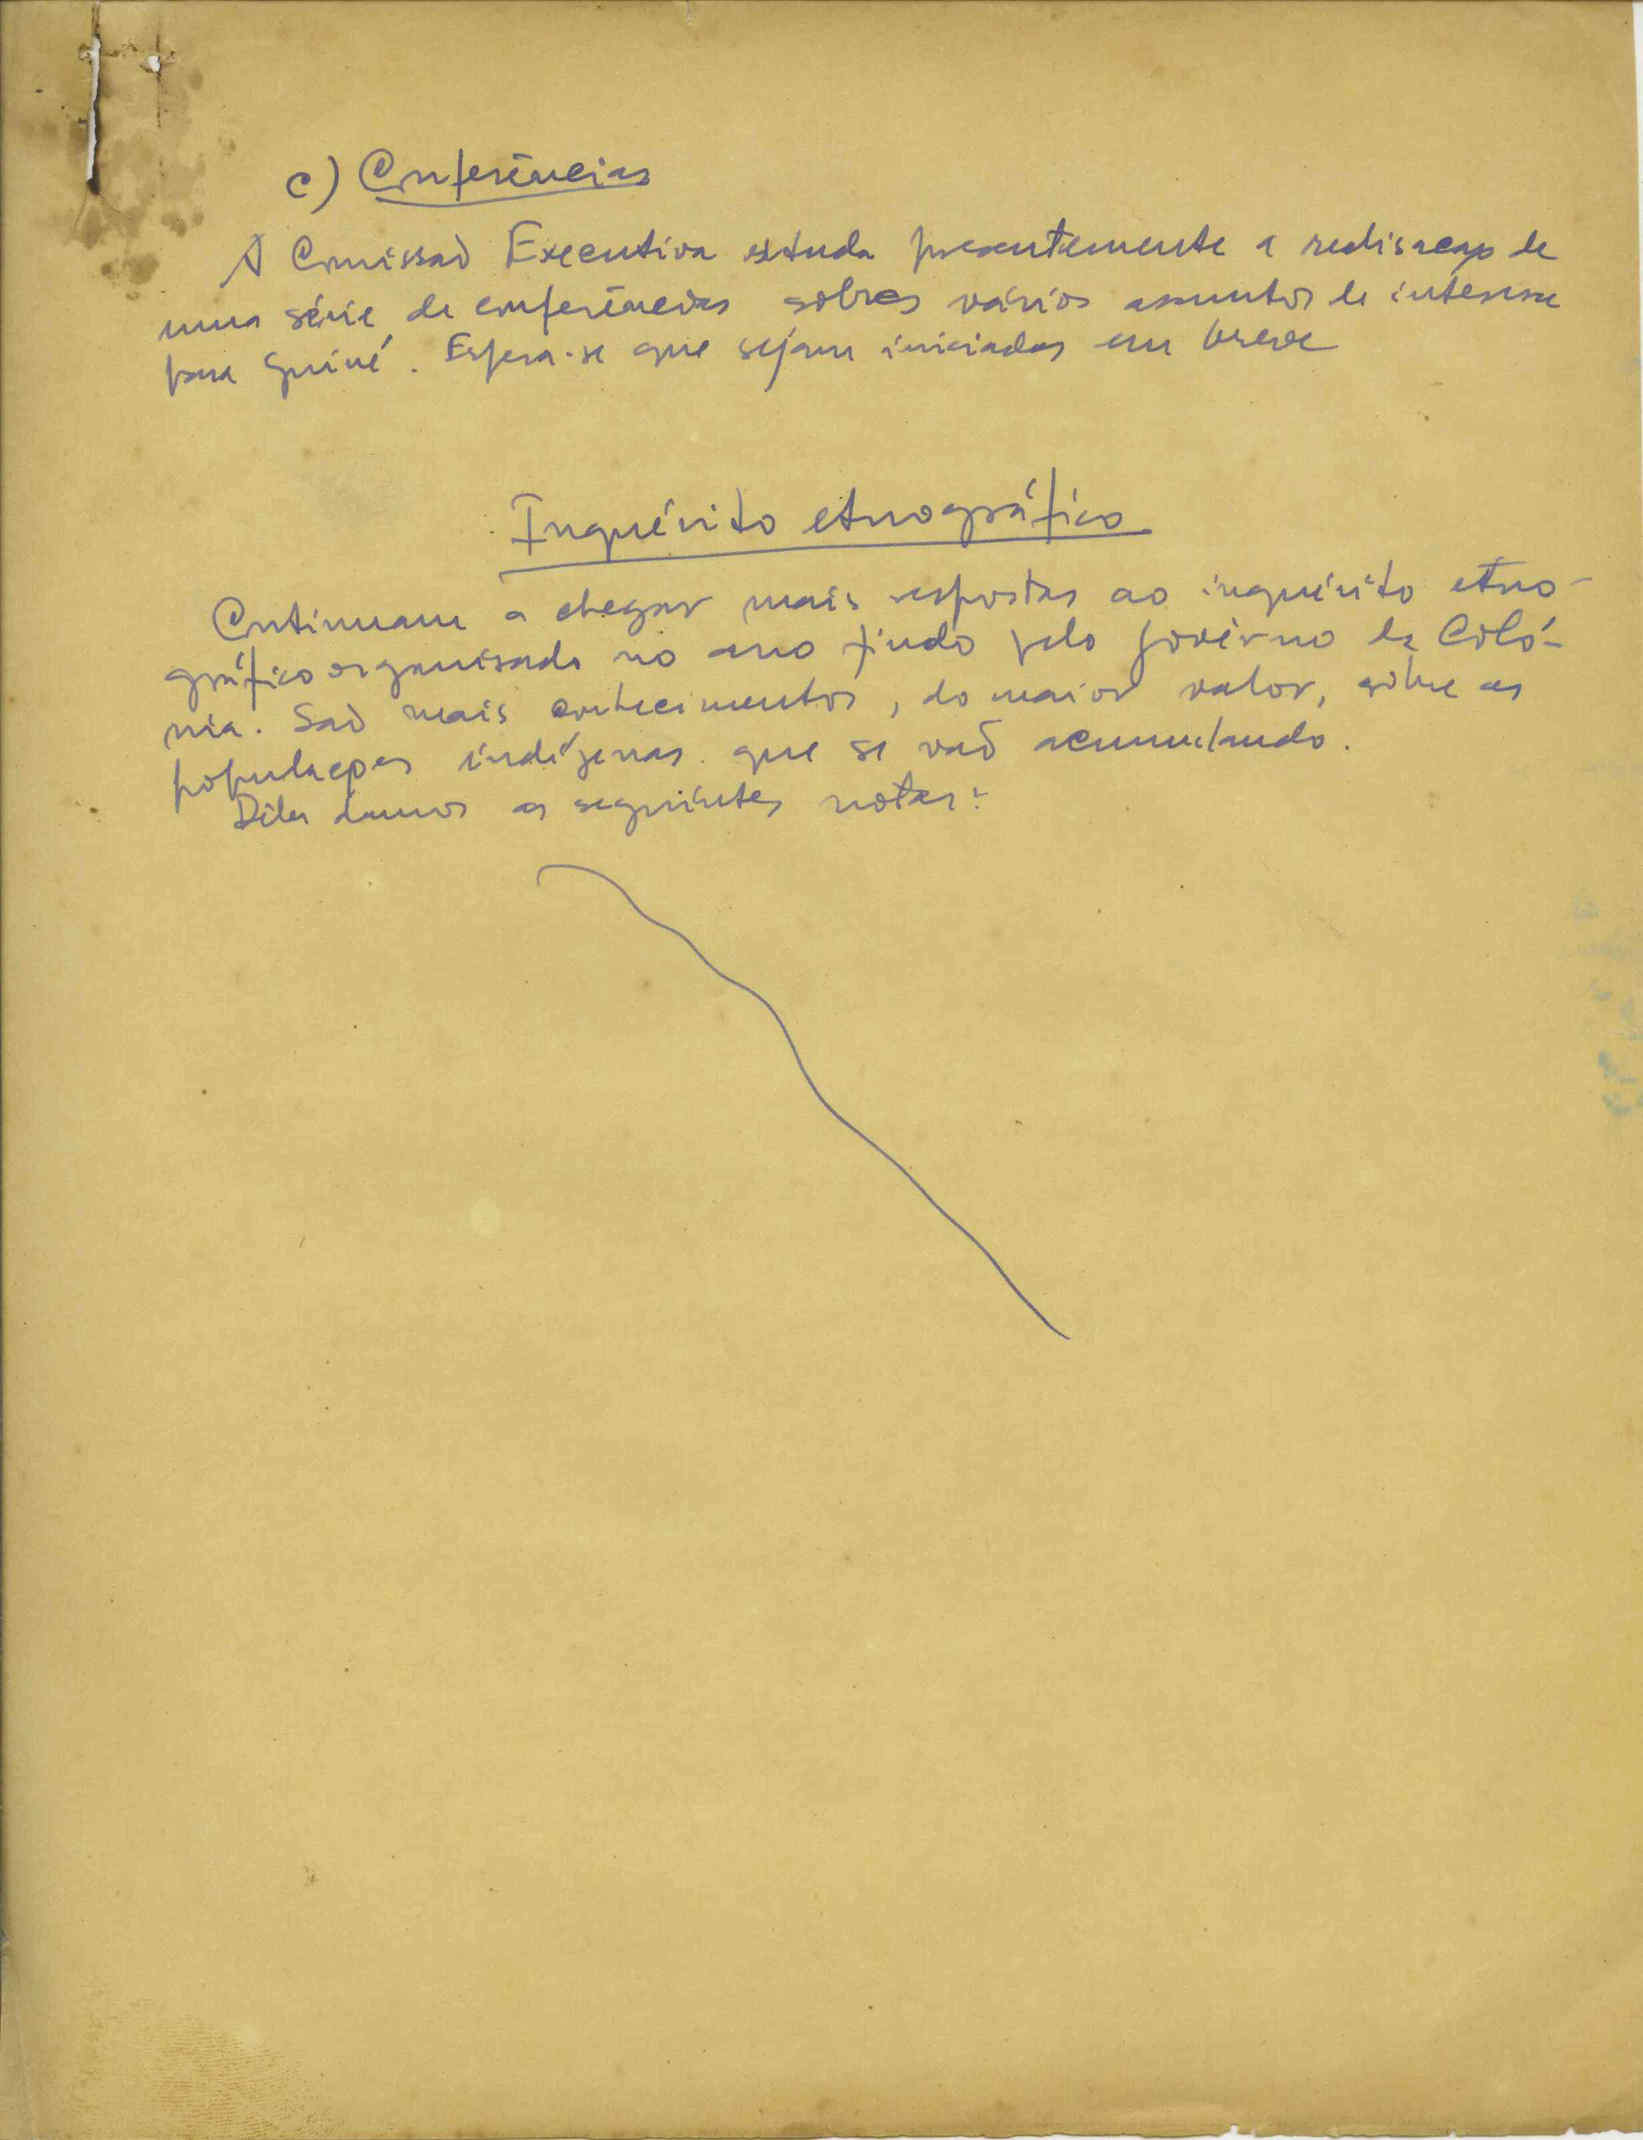 c) Conferências
A Comissão Executiva estuda presentemente a realisação de
uma série de conferências sobre vários assuntos de interesse
para Guiné. Espera-se que sejam iniciadas em breve
Inquérito etnográfico
Continuam a chegar mais respostas ao inquérito etno-
gráfico organisado no ano findo pelo govêrno da Coló-
nia. São mais conhecimentos, do maior valor, sôbre as
populações indígenas que se vão acumulando.
Dêles damos as seguintes notas: